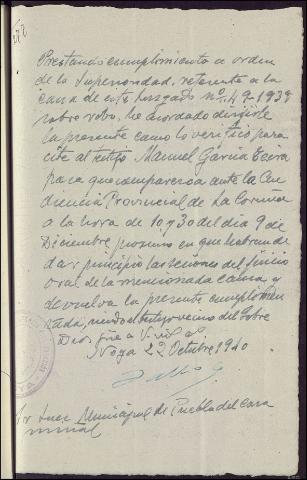 Prestando cumplimiento a orden
de la Superioridad, referente a la
causa de este Juzgado nº 49-1938
sobre robo, he acordado dirigirle
la presente como lo verifico para
cite al testigo Manuel García
para que comparezca ante la Au
diencia Provincial de La Coruña
a la hora de 10 y 30 del día 9 de
Diciembre proximo en que habran de
dar principio las sesiones del juicio
oral de la mencionada causa y
devuelva la presente cumplimen
tada, siendo el testigo vecino del Sobre
Dios gue a V. m. as
Noya 22 Octubre 1940
Sr Juez Municipal de Puebla del Cara
miñal